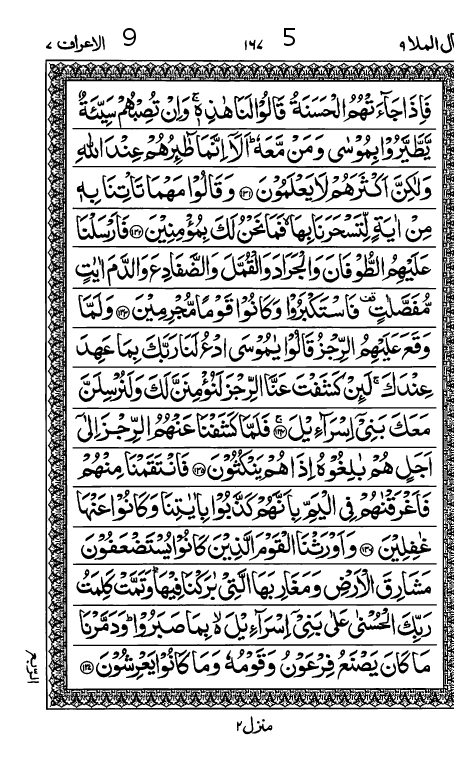 ال الملا ٩ 5 ١٦٧ 9 الاعراف ٧
فَاِذَا جَآءَتْهُمُ الْحَسَنَةُ قَالُوْا لَنَا هٰذِهٖ ۚ وَاِنْ تُصِبْهُمْ سَيِّئَةٌ
يَّطَّيَّرُوْا بِمُوْسٰى وَمَنْ مَّعَهٗ ؕ اَلَاۤ اِنَّمَا طٰٓئِرُهُمْ عِنْدَ اللّٰهِ
وَلٰكِنَّ اَكْثَرَهُمْ لَا يَعْلَمُوْنَ ﴿۱۳۱﴾ وَقَالُوْا مَهْمَا تَاْتِنَا بِهٖ
مِنْ اٰيَةٍ لِّتَسْحَرَنَا بِهَا ۙ فَمَا نَحْنُ لَكَ بِمُؤْمِنِيْنَ ﴿۱۳۲﴾ فَاَرْسَلْنَا
عَلَيْهِمُ الطُّوْفَانَ وَالْجَرَادَ وَالْقُمَّلَ وَالضَّفَادِعَ وَالدَّمَ اٰيٰتٍ
مُّفَصَّلٰتٍ فَاسْتَكْبَرُوْا وَكَانُوْا قَوْمًا مُّجْرِمِيْنَ ﴿۱۳۳﴾ وَلَمَّا
وَقَعَ عَلَيْهِمُ الرِّجْزُ قَالُوْا يٰمُوْسَى ادْعُ لَنَا رَبَّكَ بِمَا عَهِدَ
عِنْدَكَ ۚ لَئِنْ كَشَفْتَ عَنَّا الرِّجْزَ لَنُؤْمِنَنَّ لَكَ وَلَنُرْسِلَنَّ
مَعَكَ بَنِيْۤ اِسْرَآءِيْلَ ﴿۱۳۴﴾ ۚ فَلَمَّا كَشَفْنَا عَنْهُمُ الرِّجْزَ اِلٰٓى
اَجَلٍ هُمْ بٰلِغُوْهُ اِذَا هُمْ يَنْكُثُوْنَ ﴿۱۳۵﴾ فَانْتَقَمْنَا مِنْهُمْ
فَاَغْرَقْنٰهُمْ فِى الْيَمِّ بِاَنَّهُمْ كَذَّبُوْا بِاٰيٰتِنَا وَكَانُوْا عَنْهَا
غٰفِلِيْنَ ﴿۱۳۶﴾ وَاَوْرَثْنَا الْقَوْمَ الَّذِيْنَ كَانُوْا يُسْتَضْعَفُوْنَ
مَشَارِقَ الْاَرْضِ وَمَغَارِبَهَا الَّتِىْ بٰرَكْنَا فِيْهَا ؕ وَتَمَّتْ كَلِمَتُ
رَبِّكَ الْحُسْنٰى عَلٰى بَنِىْۤ اِسْرَآءِيْلَ ۙ بِمَا صَبَرُوْا ؕ وَدَمَّرْنَا
مَا كَانَ يَصْنَعُ فِرْعَوْنُ وَقَوْمُهٗ وَمَا كَانُوْا يَعْرِشُوْنَ ﴿۱۳۷﴾
الربع
منزل ٢